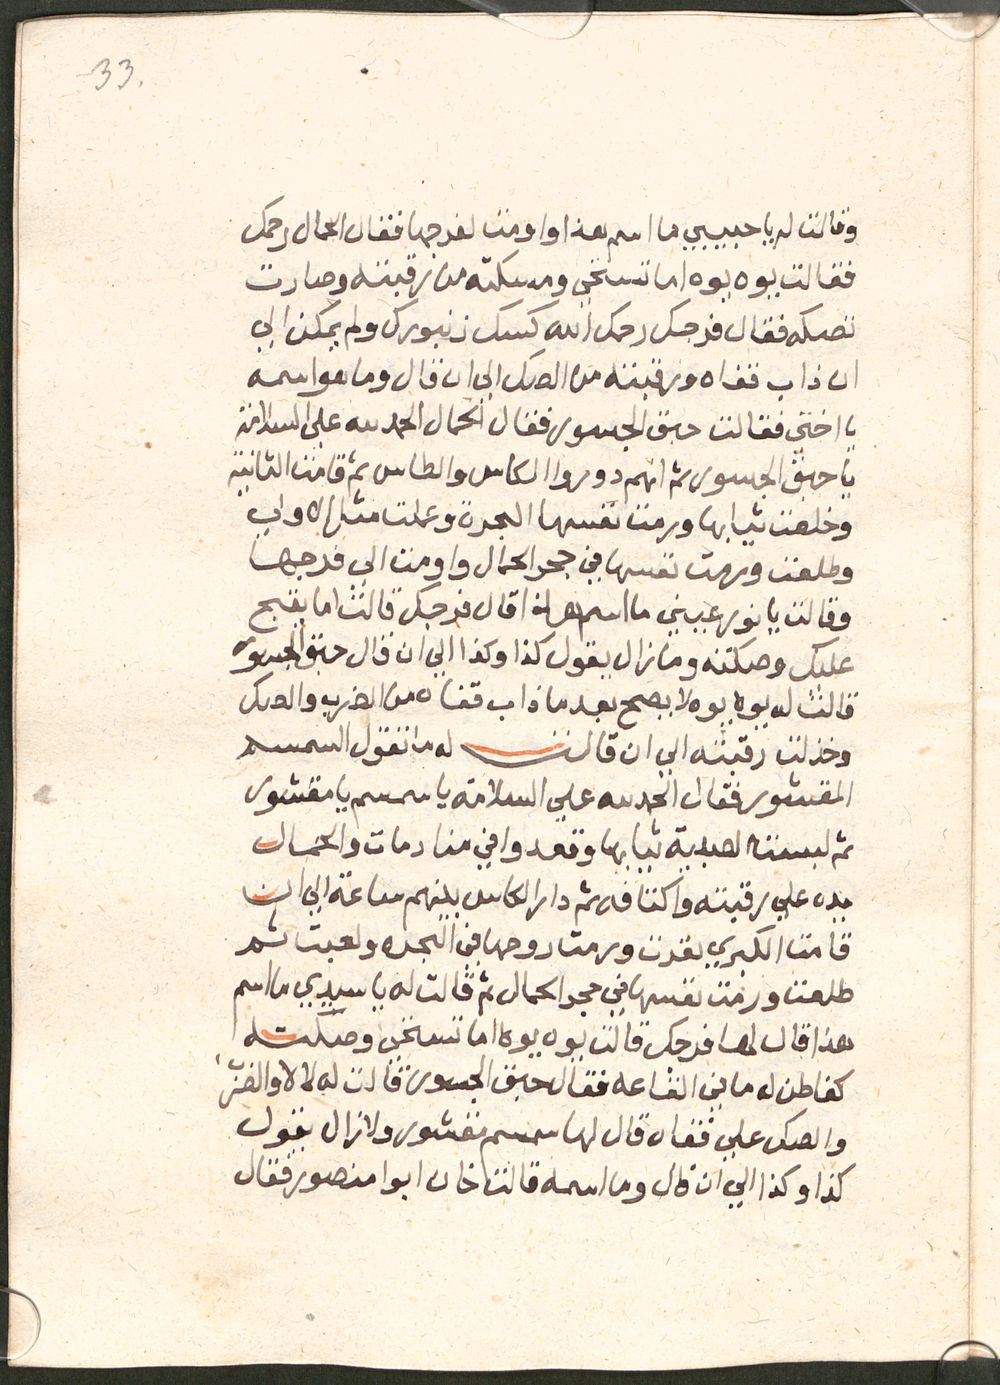 33.
وقالت له يا حبيبي ما اسم هذا واومت لفرجها فقال الحمال رحمك
فقالت يوه يوه اما تستحي ومسكته من رقبته وصارت
تصكه فقال فرجك رحمك الله كسك زنبورك ولم يمكن الي
ان ذاب قفاه ورقبته من الصك الي ان قال وما هو اسمه
يا اختي فقالت حبق الجسور فقال الحمال الحمد لله علي السلامة
يا حبق الجسور ثم انهم دوروا الكاس والطاس ثم قامت الثانية
وخلعت ثيابها ورمت نفسها البحرة وعملت مثل الاولي
وطلعت ورمت نفسها في حجر الحمال واومت الي فرجها
وقالت يا نور عيني ما اسم هذا قال فرجك قالت اما يقبح
عليك وصكته وما زال يقول كذا وكذا الي ان قال حبق الجسور
قالت له يوه يوه لا يصح بعد ما ذاب قفاه من الضرب والصك
وخذلت رقبته الي ان قالت له ما تقول السمسم
المقشور فقال الحمد لله علي السلامة يا سمسم يا مقشور
ثم لبست الصبية ثيابها وقعدوا في منادمات والحمال
يده علي رقبته واكتافه ثم دار الكاس بينهم ساعة الي ان
قامت الكبري بقدت ورمت روحها في البحره ولعبت ثم
طلعت ورمت نفسها في حجر الحمال ثم قالت له يا سيدي ما اسم
هذا قال لها فرجك قالت يوه يوه اما تستحي وصكته
كفا طن له ما في القاعه فقال حبق الجسور قالت له لا لا والضرب
والصك علي قفاه قال لها سمسم مقشور ولا زال يقول
كذا وكذا الي ان قال وما اسمه قالت خان ابوا منصور فقال